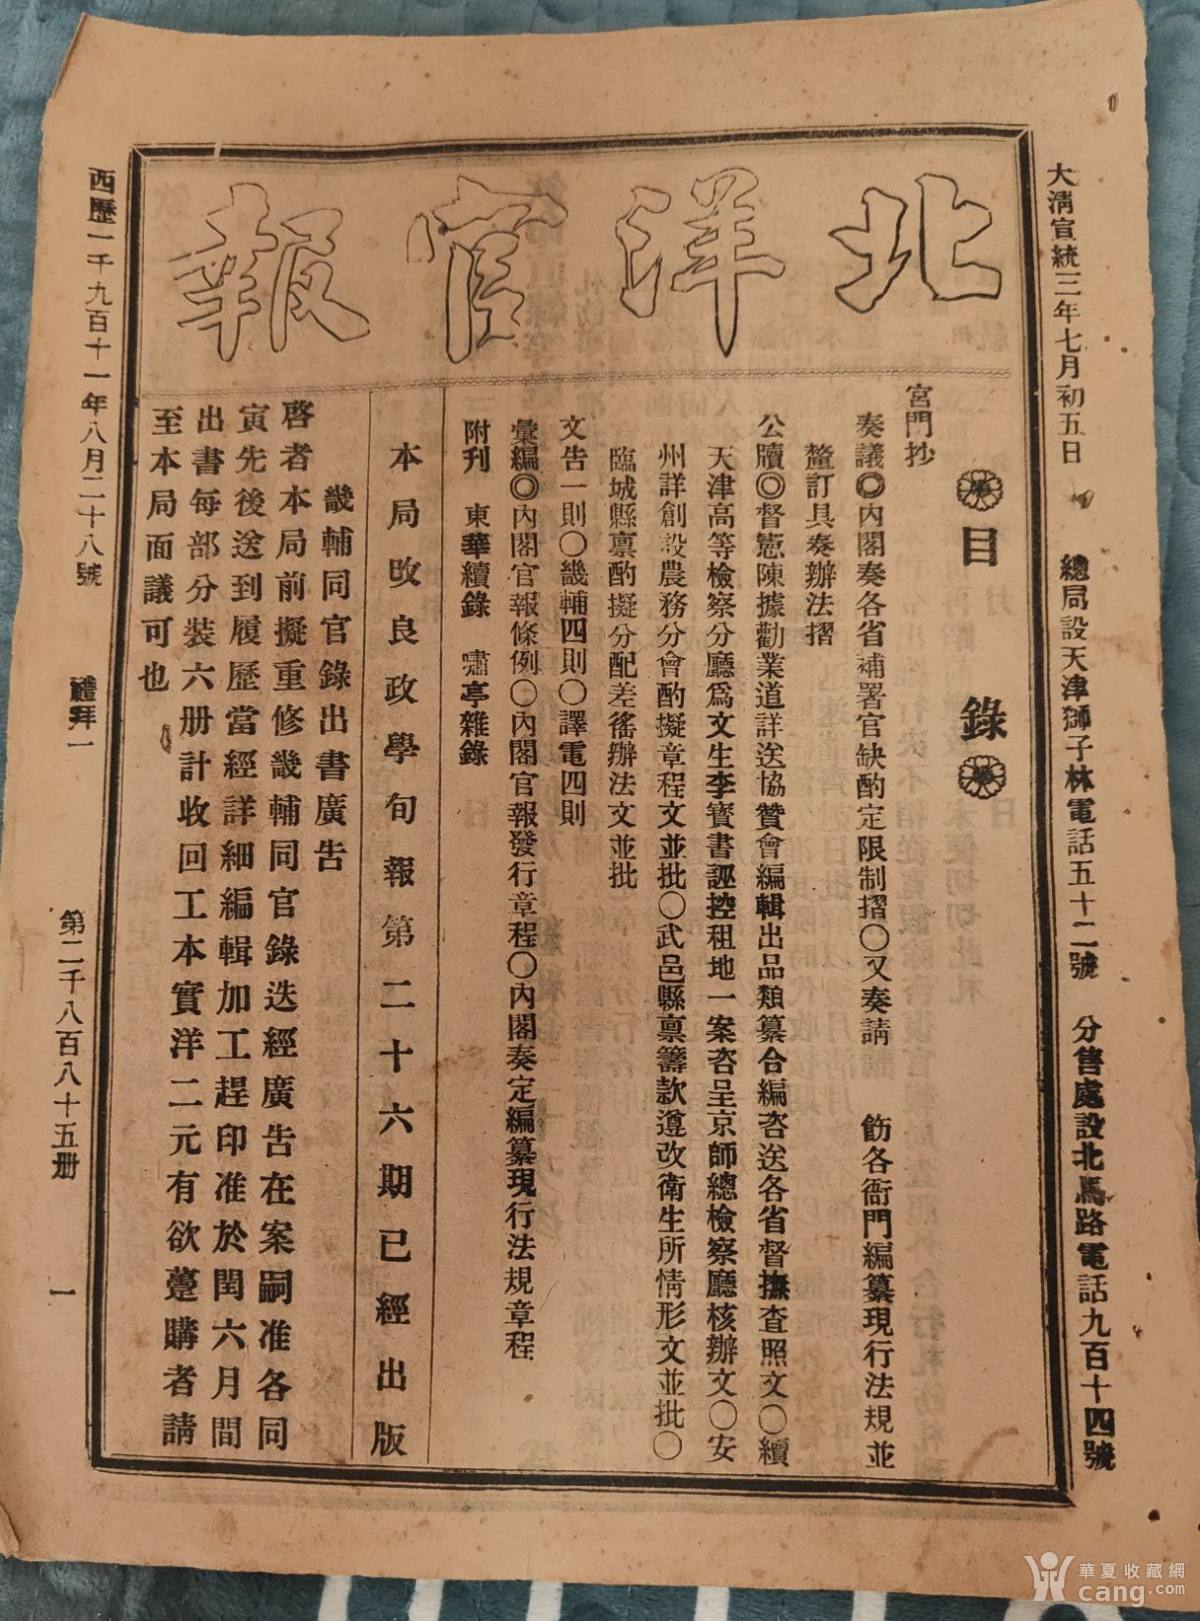 大清宣統三年七月初五日　總局設天津獅子林電話五十二號　分售處設北馬路電話九百十四號
北洋官報
目錄
宮門抄
奏議◎內閣奏各省補署官缺酌定限制摺○又奏請　飭各衙門編纂現行法規並
釐訂具奏辦法摺
公牘◎督憲陳據勸業道詳送協贊會編輯出品類纂合編咨送各省督撫查照文○續
天津高等檢察分廳爲文生李寶書誣控租地一案咨呈京師總檢察廳核辦文○安
州詳創設農務分會酌擬章程文並批○武邑縣禀籌款遵改衛生所情形文並批○
臨城縣禀酌擬分配差徭辦法文並批
文告一則○畿輔四則○譯電四則
彙編◎內閣官報條例○內閣官報發行章程○內閣奏定編纂現行法規章程
附刊　東華續錄　嘯亭雜錄
本局改良政學旬報第二十六期已經出版
畿輔同官錄出書廣告
啓者本局前擬重修畿輔同官錄迭經廣告在案嗣准各同
寅先後送到履歷當經詳細編輯加工趕印准於閏六月間
出書每部分裝六册計收回工本實洋二元有欲躉購者請
至本局面議可也
西歷一千九百十一年八月二十八號　禮拜一　第二千八百八十五册　一
華夏收藏網
cang.com